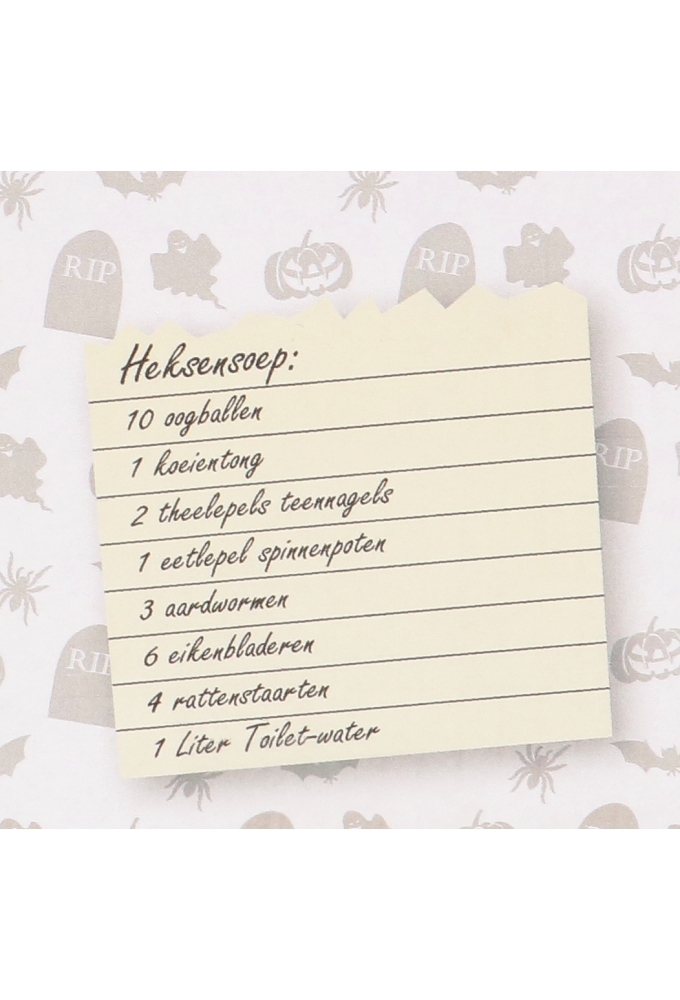 RIP
RIP
Heksensoep:
10 oogballen
1 koeientong
RIP
2 theelepels teennagels
1 eetlepel spinnenpoten
3 aardwormen
6 eikenbladeren
RIP
4 rattenstaarten
1 Liter Toilet-water